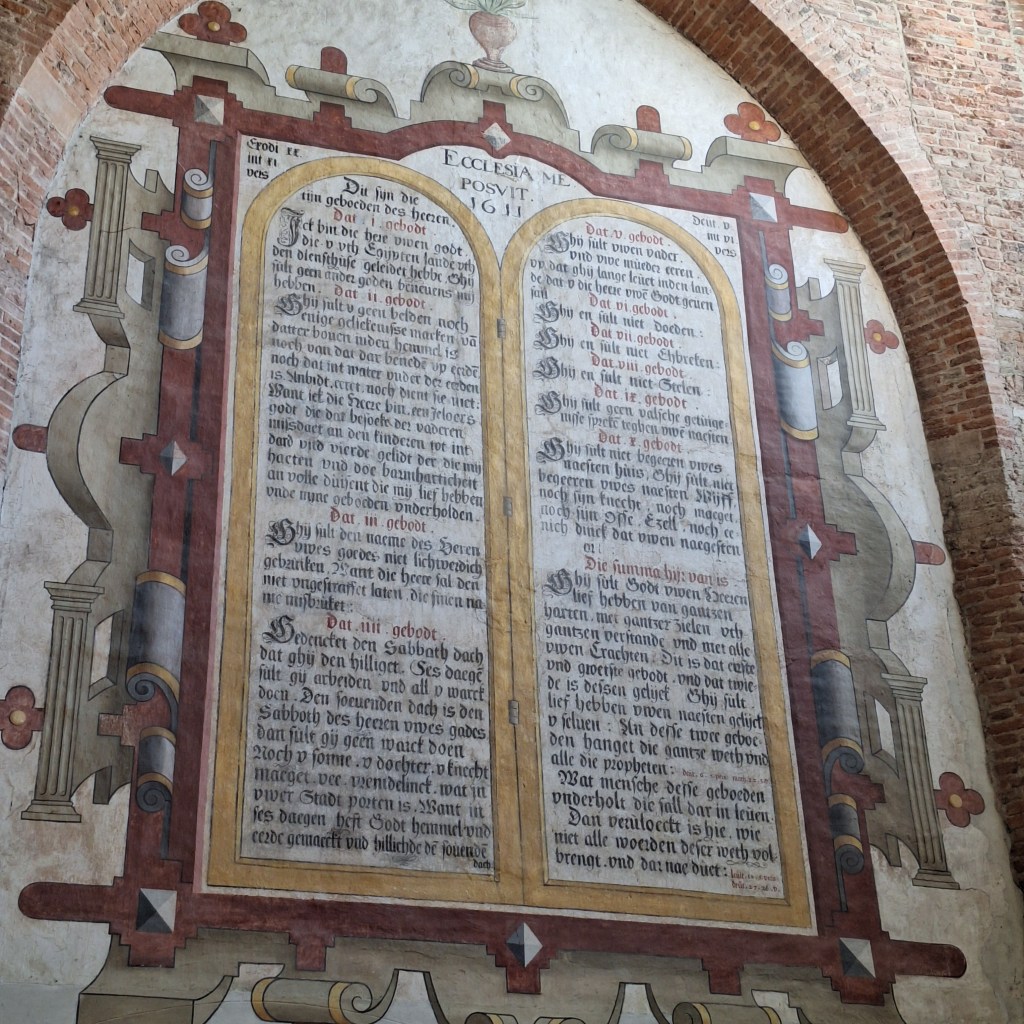 Exodi XX
int XI
vers
ECCLESIA ME
POSVIT.
1611
Deut. V
int VI
vers
Dit sijn die
tijn geboeden des heeren
Dat .i. gebodt
Ick bin die here vwen godt.
die v vth Egijpten lande vth
den dienschuse geleidet hebbe. Ghij
sult geen ander goden beneuens mij
hebben.
Dat .ii. gebodt.
Ghij sult v geen belden noch
enige gelickenisse macken vā
datter bouen inden hemmel is
noch van dat dar benedē vp erdē
noch dat int water vnder der erden
is Anbidt. eeret. noch dient sie niet:
Want ick die Heere bin. een jeloers
godt die dat besoeke der vaderen
missdaet an den kinderen tot int
dard vnd vierde gelidt der die mij
haeten vnd doe barmhartichett
an volle duisent die mij lief hebben
vnde mijne geboeden vnderholden.
Dat .iii. gebodt.
Ghij sult den naeme des Heren
vwes goedes niet lichverdich
gebrucken. Want die heere sal den
niet vngestraffet laten. die sinen na
me misbrucket:
Dat .iiii. gebodt.
Gedencket den Sabbath dach
dat ghij den hilliget. Ses daegē
sult gij arbeiden. vnd all v warck
doen. Den soeuenden dach is den
Sabboth des heeren vwes gades
dan sult gij geen warck doen
Noch v sonne. v dochter. v knecht
maeget. vee. vremdelinck. wat in
vwer Stadt porten is. Want in
ses daegen heft Godt hemmel vnd
eerde gemaeckt vnd hillichde dē souendē
dach
Dat .v. gebodt.
Ghij sult vwen vader.
vnd vwe mueder eeren.
vp dat ghij lange leuet inden lan
de dat v die heer vwē Godt geuen
sall
Dat .vi. gebodt.
Ghij en sult niet doeden:
Dat .vii. gebodt.
Ghij en sult niet Ehbreken:
Dat .viii. gebodt.
Ghij en sult niet Stelen:
Dat .ix. gebodt.
Ghij sult geen valsche getuige
nisse spreke teghen vwē naesten
Dat .x. gebodt.
Ghij sult niet begeren vwes
naesten huis, Ghij sult niet
begeeren vwes naesten Wijff
noch sijn knecht, noch maeget.
noch sijn Osse. Ezell. noch ee
nich dinck dat vwen naegesten
Die summa hijr van is
Ghij sult Godt vwen Heeren
lief hebben van gantzen
harten. met gantzer zielen vth
gantzen verstande vnd met alle
vwen Crachten: Dit is dat erste
vnd groetste gebodt. vnd dat twie
de is dessen gelijck Ghij sult
lief hebben vwen naesten gelijck
v seluen: An desse twee geboe-
den hanget die gantze weth vnd
alle die propheten:
Wat mensche desse geboeden
vnderholt die sall dar in leuen.
Dan veruloeckt is hie. wie
niet alle woerden deser weth vol
brengt. vnd dar nae duet: